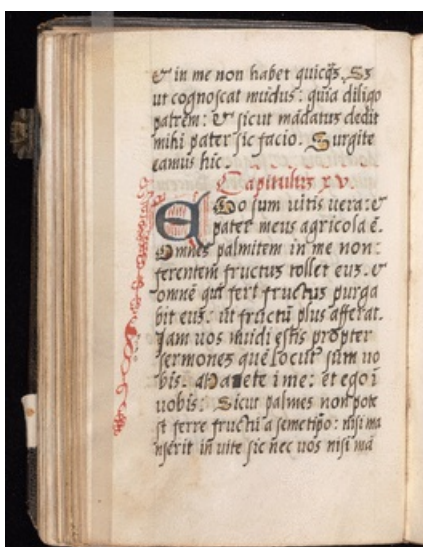 & in me non habet quicq̃ȝ. Sȝ
ut cognoſcat mūdus: quia diligo
patrem: & sicut mādatuȝ dedit
mihi pater ſic facio. Surgite
eamus hic.
Capituluȝ xv
EGo ſum uitis uera: &
pater meus agricola ē.
Omneȝ palmitem in me non
ferentem fructuȝ tollet euȝ. &
omnē qui fert fructuȝ purga
bit euȝ. ut fructū plus afferat.
Iam uos mūdi eſtis propter
ſermoneȝ quē locut ſum uo
bis. Manete i me: et ego ī
uobis: Sicut palmes non pote
ſt ferre fructū a ſemetip̄o: niſi ma
nſerit in uite ſic nec uos niſi mā